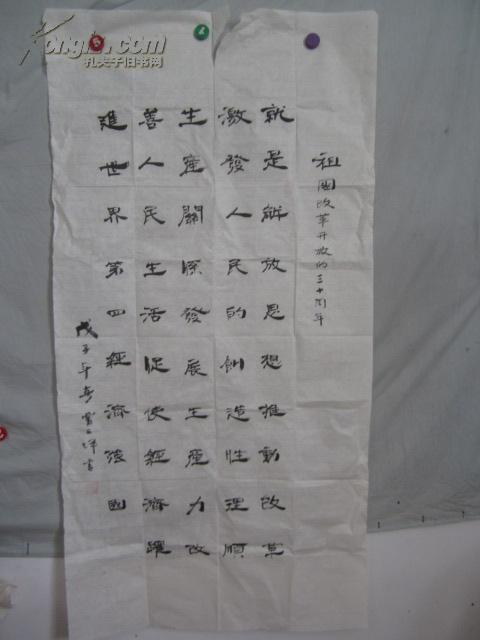 Kongfz.com
孔夫子旧书网
祖國改革开放的三十周年
就是解放思想推動改革
激發人民的創造性理順
生産關係發展生産力改
善人民生活促使經濟躍
進世界第四經濟强國
戊子年春
書